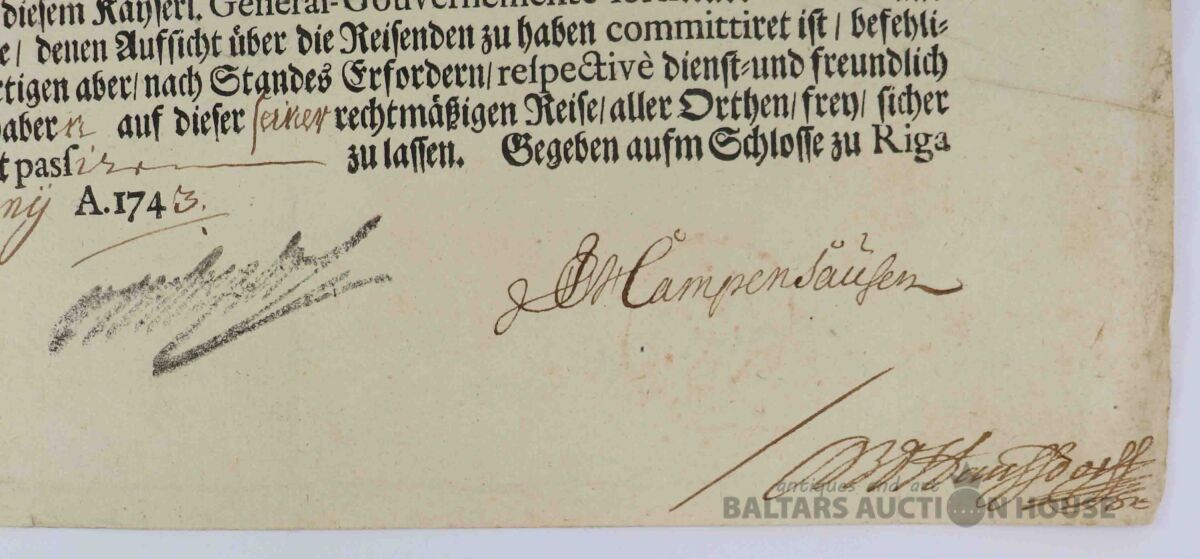 diesem Kayserl. General-Gouvernemente
/ denen Aufsicht über die Reisenden zu haben committiret ist / befehli-
tigen aber / nach Standes Erfordern / respectivè dienst-und freundlich
aber auf dieser seiner rechtmäßigen Reise / aller Orthen / frey / sicher
t passiren zu lassen. Gegeben aufm Schlosse zu Riga
nÿ A. 1743.
Campenhausen
antiques and art
BALTARS AUCTION HOUSE